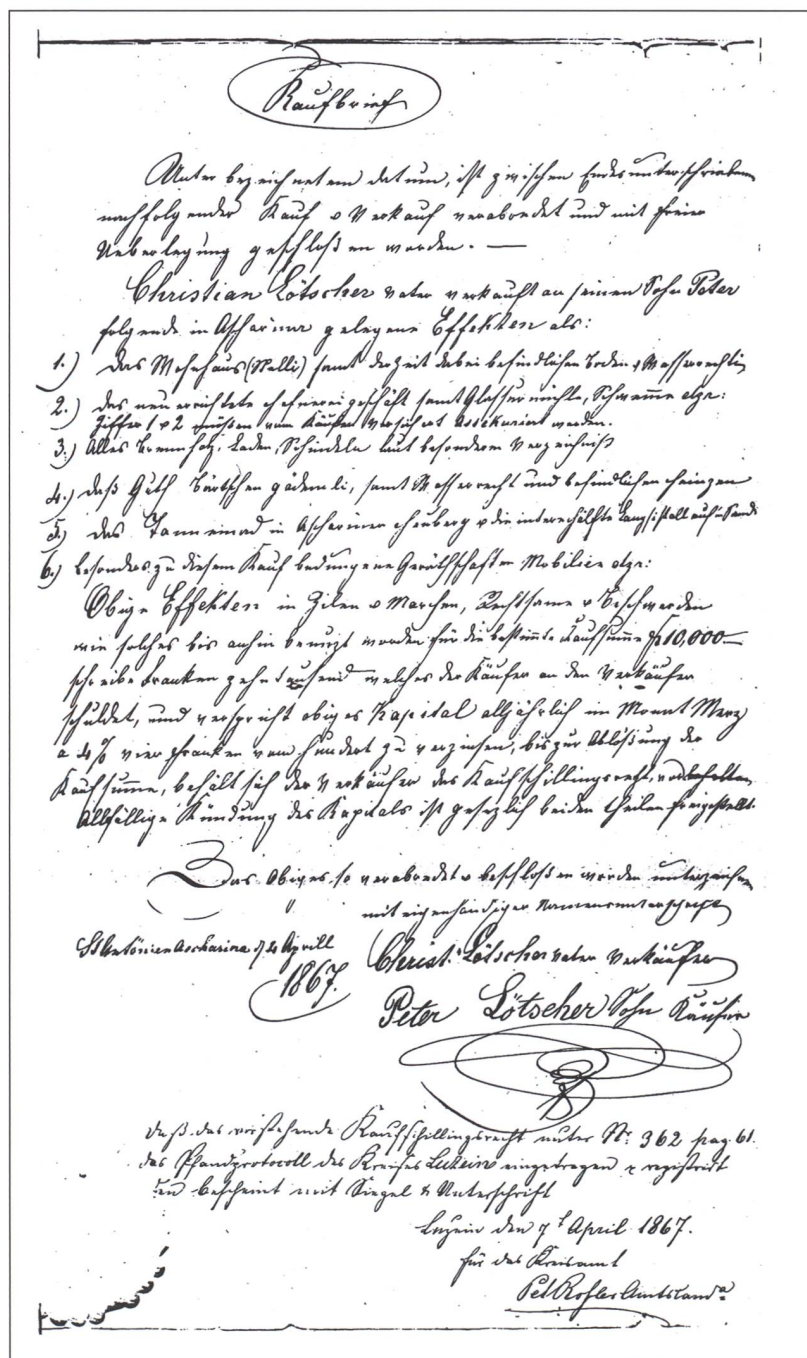 Kaufbrief
Unter bezeichnetem datum, ist zwischen Endesunterschriebenen
nachfolgender Kauf & Verkauf verabredet und mit freier
Ueberlegung geschloßen worden. —
Christian Lötscher vater verkauft an seinen Sohn Peter
folgende in Ascharina gelegene Effekten als:
1.) das Wohnhaus (Nelli) samt derzeit dabei befindlichen Boden & Wasserrecht
2.) das neu errichtete Hafnereigeschäft samt Glassurmühle, Schwemme etzr:
Ziffer 1 & 2 müßen vom Käufer versichert Assekuriert werden.
3.) Alles Brennholz, Laden, Schindeln laut besonderem Verzeichniß
4.) daß Guth Bärtschen gädemli, samt Wasserrecht und befindlichen Heinzen
5.) das in Aschariner Heuberg & die
6.) besonders zu diesem Kauf bedungene Geräthschaften Mobilien etzr:
Obige Effekten in Zilen & Marchen, Rechtsame & Beschwerden
wie solches bis anhin benuzt worden für die bestimte Kaufsumme fr 10,000—
schreibe Franken zehn tausend welches der Käufer an den Verkäufer
schuldet, und verspricht obiges Kapital alljährlich im Monat Merz
a 4% vier Franken vom hundert zu verzinsen, bis zur Ablößung der
Kaufsumme, behält sich der Verkäufer das Kaufschillingsrecht, vorbehalten
Allfällige Kündung des Kapitals ist gesezlich beiden theilen freigestellt.
Das Obiges so verabredet & beschloßen worden unterzeichnen
mit eigenhändiger Namensunterschrift
St Antönien Ascharina d 4 Aprill
1867.
Christ. Lötscher vater Verkäufer
Peter Lötscher Sohn Käufer
daß das vorstehende Kaufschillingsrecht unter Nr: 362 pag. 61.
das Pfandprotocoll des Kreises Luzein eingetragen & registrirt
bescheint mit Siegel & Unterschrift
Luzein den 7t April 1867.
für das Kreisamt
Pet Kofler Amtslanda